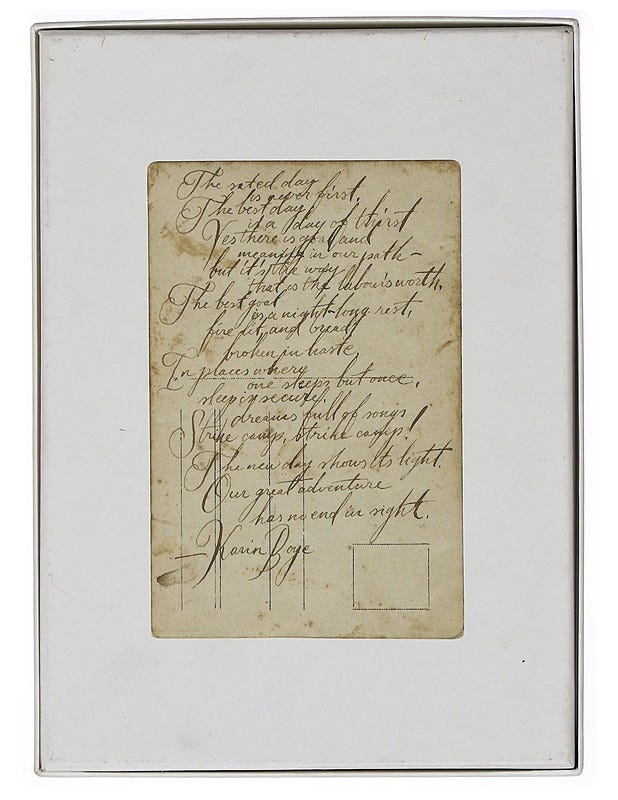 The sated day
is never first.
The best day
is a day of thirst
Yes there is goal and
meaning in our path -
but it's the way
that is the labour's worth.
The best goal
is a night-long rest,
fire lit, and bread
broken in haste,
In places where
one sleeps but once,
sleep is secure,
dreams full of songs
Strike camp, strike camp!
The new day shows its light.
Our great adventure
has no end in sight.
- Karin Boye